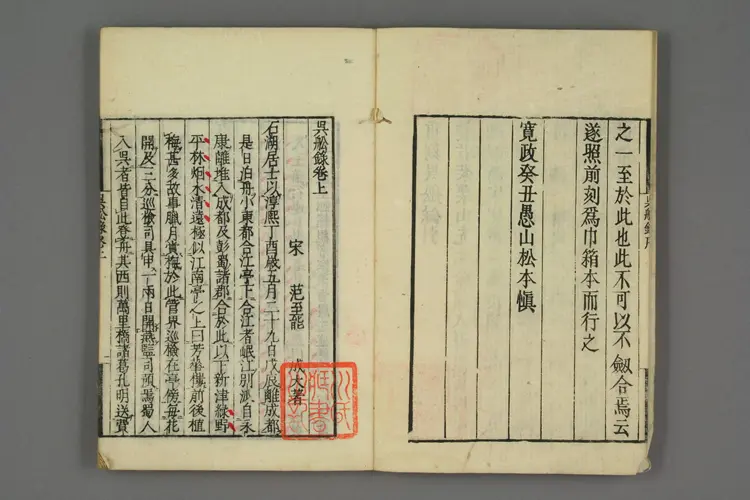 之一至於此也此不可以不劔合焉云
遂照前刻爲巾箱本而行之
寬政癸丑愚山松本愼
吳船錄序
吳船錄卷上
宋 范至能 成大著
石湖居士以淳熙丁酉歲五月二十九日戊辰離成都
是日泊舟小東郭合江亭下合江者岷江別派自永
康離堆入成都及彭蜀諸郡合於此以下新津綠野
平林烟水清遠極似江南亭之上曰芳華樓前後植
梅甚多故事臘月賞梅於此管界巡檢在亭傍每花
開及三分巡檢司具申一兩日開燕監司預焉蜀人
入吳者皆自此登舟其西則萬里橋諸葛孔明送費